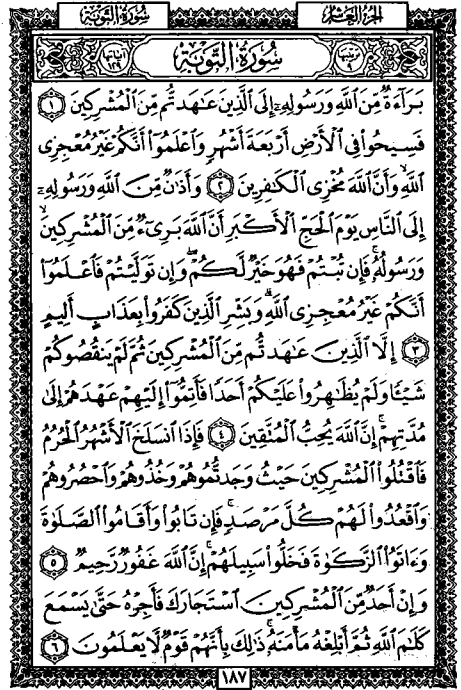 سُورَةُ التَّوْبَةِ الجُزءُ العَاشِرُ
آياتها ١٢٩ سُورَةُ التَّوْبَةِ ترتيبها ٩
بَرَآءَةٌ مِّنَ ٱللَّهِ وَرَسُولِهِۦٓ إِلَى ٱلَّذِينَ عَٰهَدتُّم مِّنَ ٱلْمُشْرِكِينَ ١
فَسِيحُوا۟ فِى ٱلْأَرْضِ أَرْبَعَةَ أَشْهُرٍ وَٱعْلَمُوٓا۟ أَنَّكُمْ غَيْرُ مُعْجِزِى
ٱللَّهِ ۙ وَأَنَّ ٱللَّهَ مُخْزِى ٱلْكَٰفِرِينَ ٢ وَأَذَٰنٌ مِّنَ ٱللَّهِ وَرَسُولِهِۦٓ
إِلَى ٱلنَّاسِ يَوْمَ ٱلْحَجِّ ٱلْأَكْبَرِ أَنَّ ٱللَّهَ بَرِىٓءٌ مِّنَ ٱلْمُشْرِكِينَ ۙ
وَرَسُولُهُۥ ۚ فَإِن تُبْتُمْ فَهُوَ خَيْرٌ لَّكُمْ ۖ وَإِن تَوَلَّيْتُمْ فَٱعْلَمُوٓا۟
أَنَّكُمْ غَيْرُ مُعْجِزِى ٱللَّهِ ۗ وَبَشِّرِ ٱلَّذِينَ كَفَرُوا۟ بِعَذَابٍ أَلِيمٍ
٣ إِلَّا ٱلَّذِينَ عَٰهَدتُّم مِّنَ ٱلْمُشْرِكِينَ ثُمَّ لَمْ يَنقُصُوكُمْ
شَيْـًٔا وَلَمْ يُظَٰهِرُوا۟ عَلَيْكُمْ أَحَدًا فَأَتِمُّوٓا۟ إِلَيْهِمْ عَهْدَهُمْ إِلَىٰ
مُدَّتِهِمْ ۚ إِنَّ ٱللَّهَ يُحِبُّ ٱلْمُتَّقِينَ ٤ فَإِذَا ٱنسَلَخَ ٱلْأَشْهُرُ ٱلْحُرُمُ
فَٱقْتُلُوا۟ ٱلْمُشْرِكِينَ حَيْثُ وَجَدتُّمُوهُمْ وَخُذُوهُمْ وَٱحْصُرُوهُمْ
وَٱقْعُدُوا۟ لَهُمْ كُلَّ مَرْصَدٍ ۚ فَإِن تَابُوا۟ وَأَقَامُوا۟ ٱلصَّلَوٰةَ
وَءَاتَوُا۟ ٱلزَّكَوٰةَ فَخَلُّوا۟ سَبِيلَهُمْ ۚ إِنَّ ٱللَّهَ غَفُورٌ رَّحِيمٌ ٥
وَإِنْ أَحَدٌ مِّنَ ٱلْمُشْرِكِينَ ٱسْتَجَارَكَ فَأَجِرْهُ حَتَّىٰ يَسْمَعَ
كَلَٰمَ ٱللَّهِ ثُمَّ أَبْلِغْهُ مَأْمَنَهُۥ ۚ ذَٰلِكَ بِأَنَّهُمْ قَوْمٌ لَّا يَعْلَمُونَ ٦
١٨٧